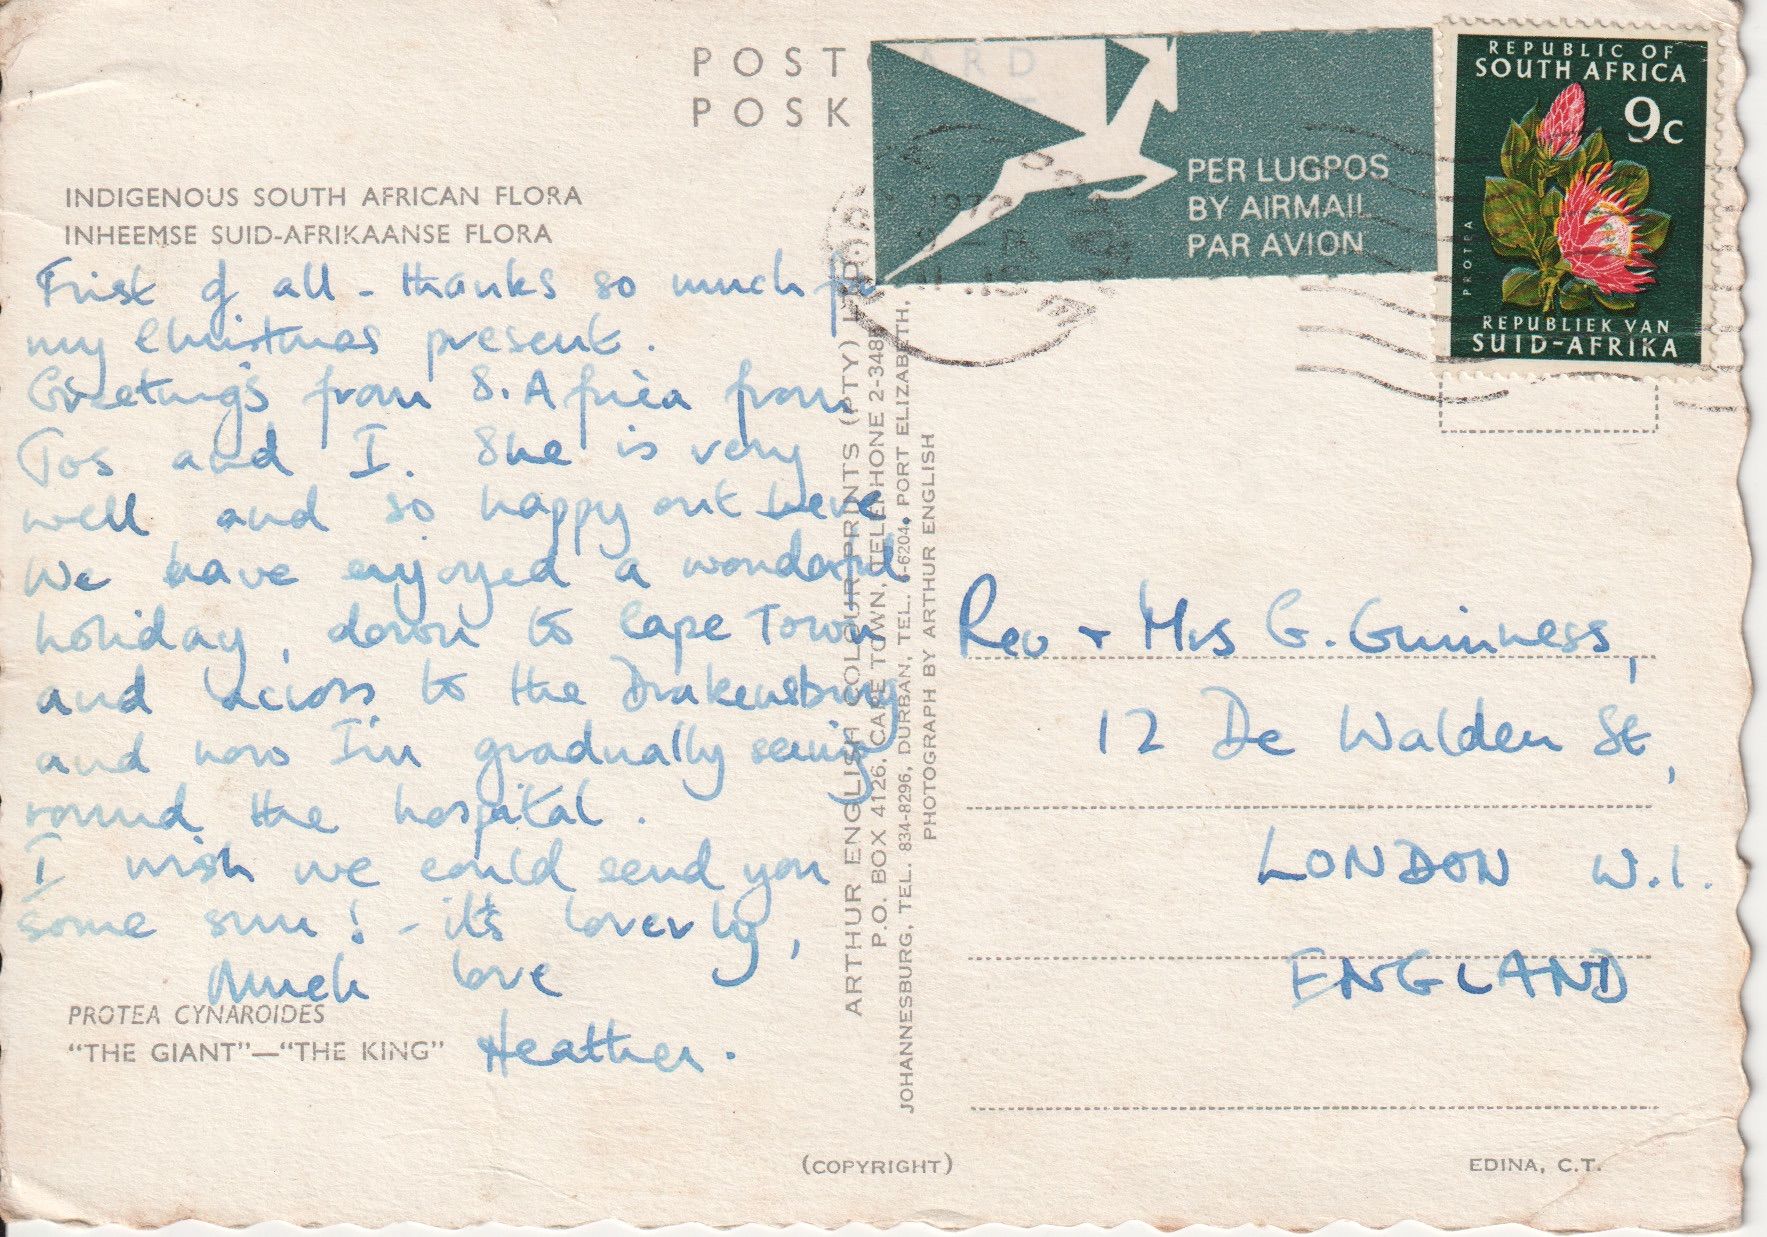 POSTCARD
POSK
INDIGENOUS SOUTH AFRICAN FLORA
INHEEMSE SUID-AFRIKAANSE FLORA
PER LUGPOS
BY AIRMAIL
PAR AVION
REPUBLIC OF
SOUTH AFRICA
9c
PROTEA
REPUBLIEK VAN
SUID-AFRIKA
1972
First of all - thanks so much for
my Christmas present.
Greetings from S. Africa from
Jos and I. She is very
well and so happy out here.
We have enjoyed a wonderful
holiday, down to Cape Town
and across to the Drakensburg
and now I'm gradually seeing
round the hospital.
I wish we could send you
some sun! - it's loverly,
Much love
Heather.
PROTEA CYNAROIDES
"THE GIANT"—"THE KING"
ARTHUR ENGLISH COLOUR PRINTS (PTY)
P.O. BOX 4126, CAPE TOWN, TELEPHONE 2-348
JOHANNESBURG, TEL. 834-8296, DURBAN, TEL. 6-6204, PORT ELIZABETH,
PHOTOGRAPH BY ARTHUR ENGLISH
Rev + Mrs G. Guinness,
12 De Walden St,
LONDON W.1.
ENGLAND
(COPYRIGHT)
EDINA, C.T.